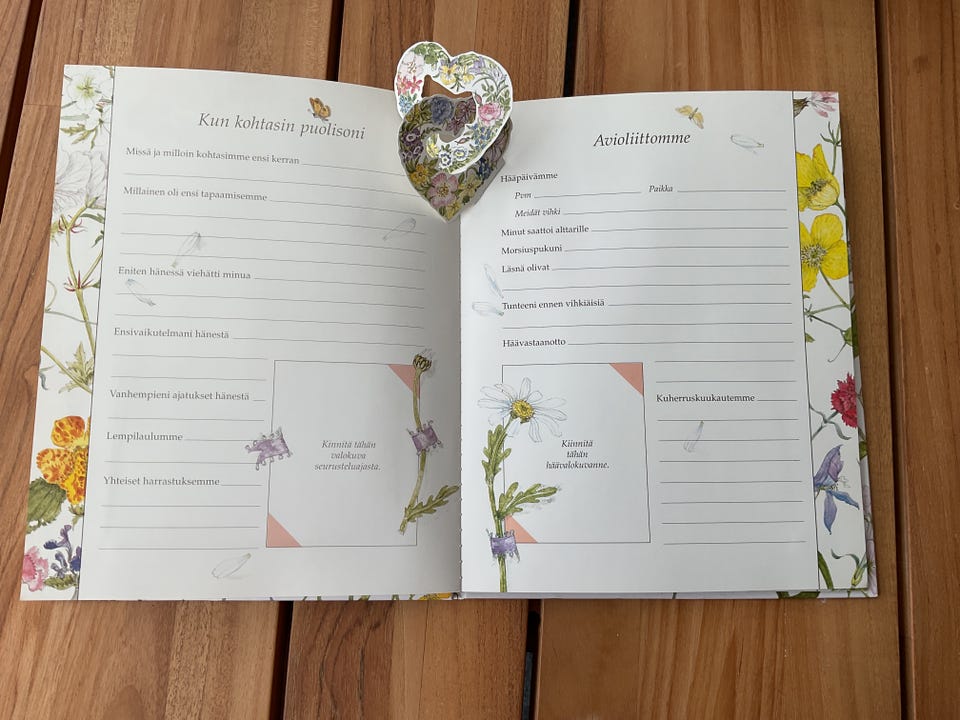 Kun kohtasin puolisoni
Missä ja milloin kohtasimme ensi kerran
Millainen oli ensi tapaamisemme
Eniten hänessä viehätti minua
Ensivaikutelmani hänestä
Vanhempieni ajatukset hänestä
Lempilaulumme
Yhteiset harrastuksemme
Kinnitä tähän
valokuva
seurusteluajasta.
Avioliittomme
Hääpäivämme
Pvm Paikka
Meidät vihki
Minut saattoi alttarille
Morsiuspukuni
Läsnä olivat
Tunteeni ennen vihkiäisiä
Häävastaanotto
Kuherruskuukautemme
Kiinnitä
tähän
häävalokuvanne.